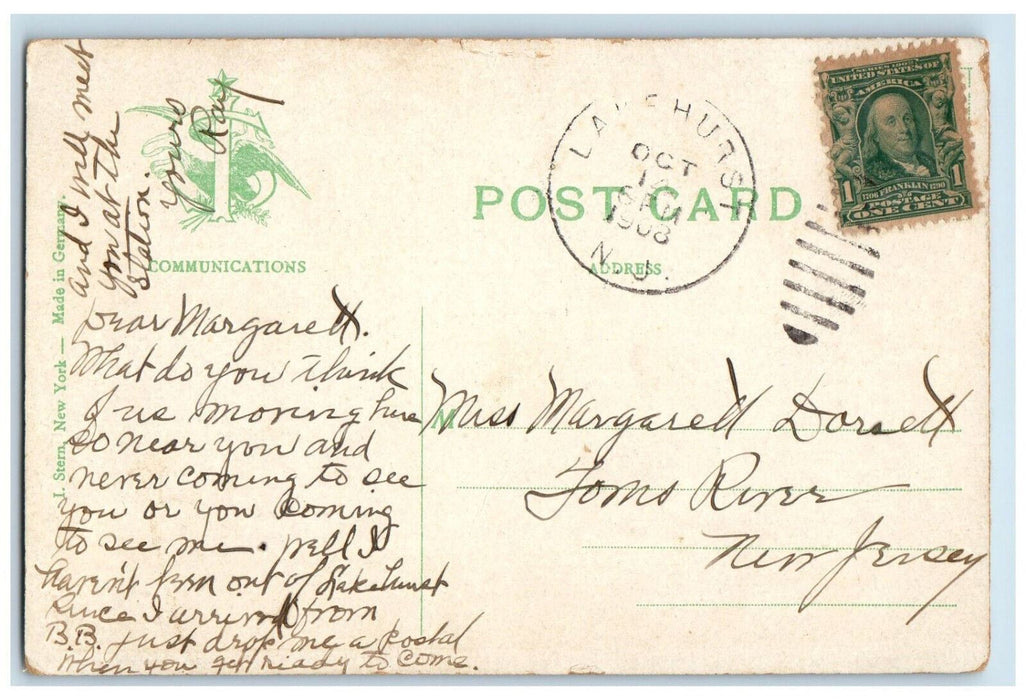 POST CARD
COMMUNICATIONS
ADDRESS
I. Stern, New York — Made in Germany.
LAKEHURST
OCT
14
6 AM
1908
N. J.
SERIES 1902
UNITED STATES OF
AMERICA
1 1706 FRANKLIN 1790 1
POSTAGE
ONE CENT
Dear Margarett.
What do you think
of us moving here
so near you and
never coming to see
you or you coming
to see me. well I
haven't been out of Lakehurst
since I arrived from
B.B. just drop me a postal
when you get ready to come.
and I will meet
you at the
station.
yours
Ray
Miss Margarett Dorsett
Toms River
New Jersey